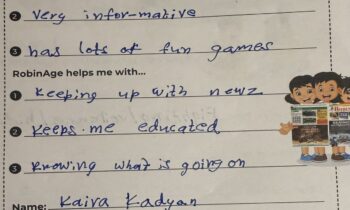 2 Very infor-mative
3 has lots of fun games
RobinAge helps me with...
1 Keeping up with newz
2 Keeps me educated
3 Knowing what is going on
Name: Kaira Kadyan